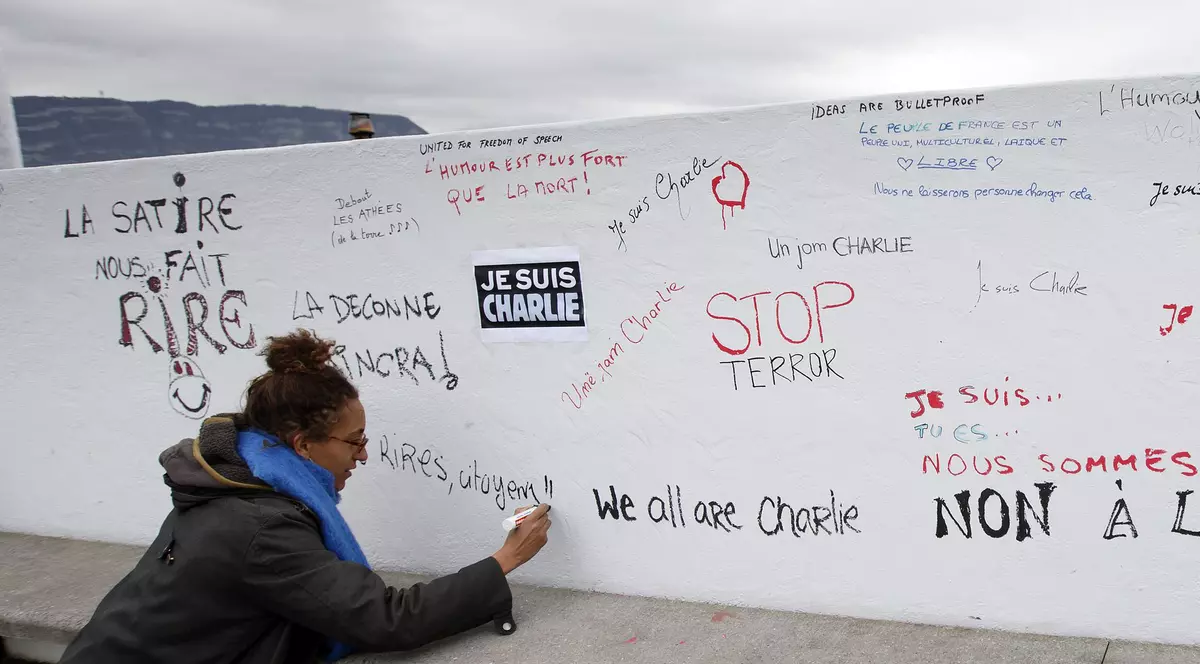 LA SATIRE
NOUS FAIT
RIRE
Debout
LES ATHÉES
(de la terre
LA DECONNE
UNITED FOR FREEDOM OF SPEECH
L'HUMOUR EST PLUS FORT
QUE LA MORT!
JE SUIS
CHARLIE
RIRES, citoyens !!
Je suis Charlie
Une jam Charlie
STOP
TERROR
We all are Charlie
IDEAS ARE BULLETPROOF
LE PEUPLE DE FRANCE EST UN
PEUPLE UNI, MULTICULTUREL, LAÏQUE ET
LIBRE
Nous ne laisserons personne changer cela.
Un jom CHARLIE
Je suis Charlie
JE SUIS...
TU ES...
NOUS SOMMES
NON À L
L'Humour
Je suis
JE